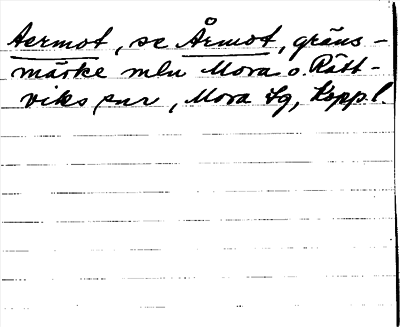 Aermot, se Årmot, gräns-
märke mln Mora o. Rätt-
viks snr, Mora tg, Kopp.l.